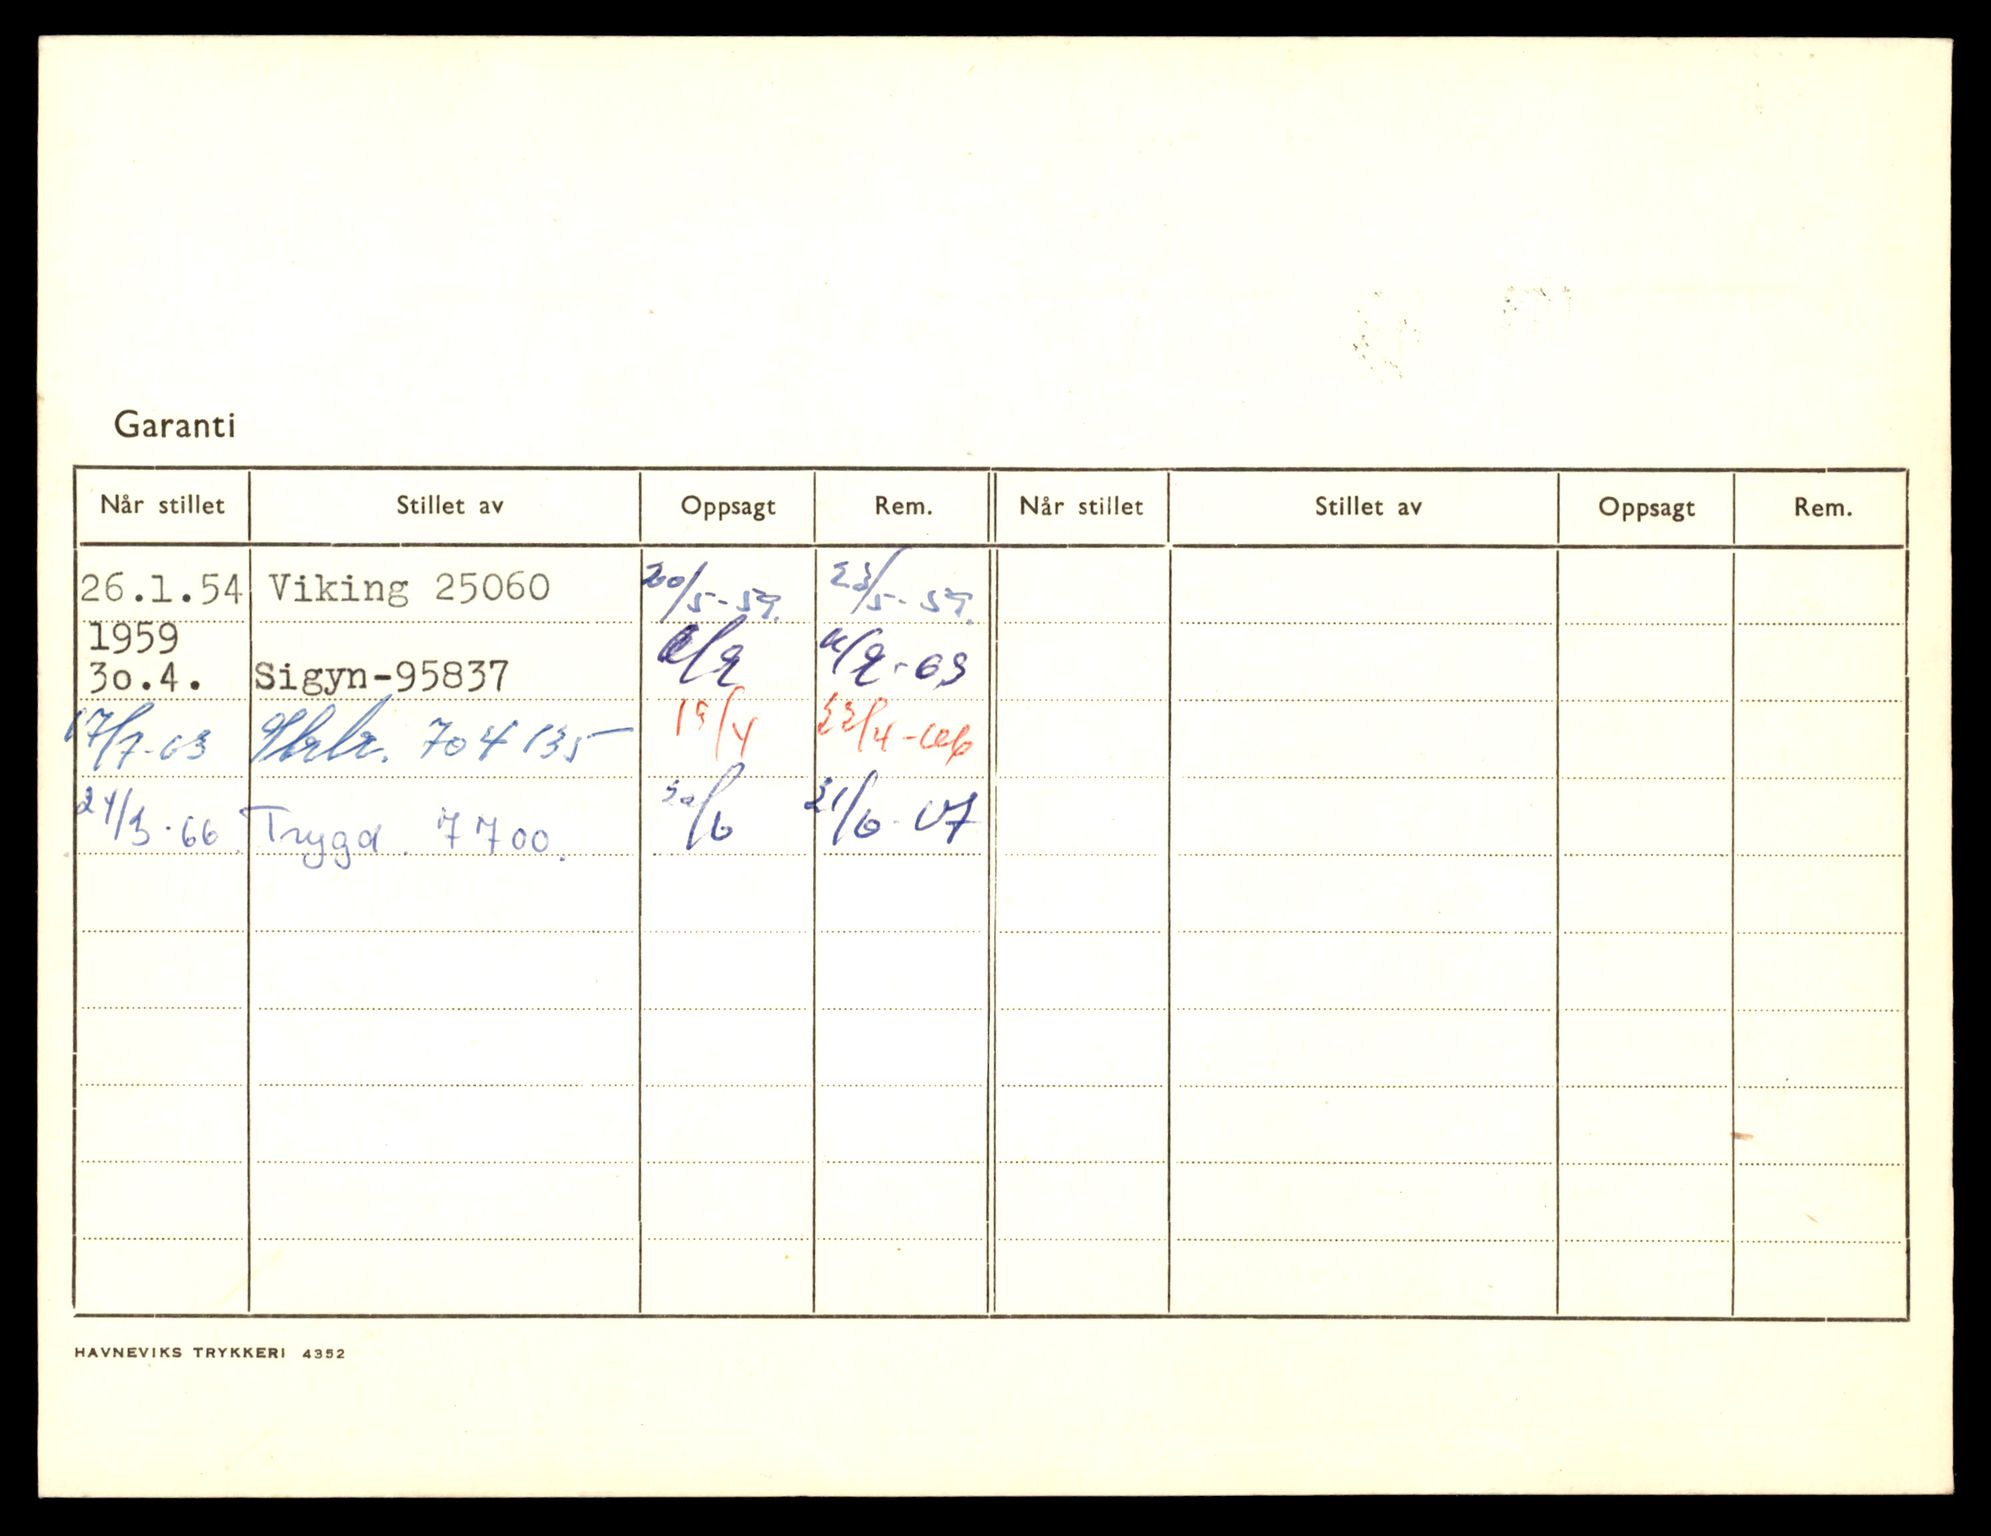 Garanti
Når stillet Stillet av Oppsagt Rem. Når stillet Stillet av Oppsagt Rem.
26.1.54 Viking 25060 20/5-59. 23/5-59.
1959
30.4. Sigyn-95837
17/7-63 704135 19/4 22/4-66
24/3-66. Trygd. 7700. 20/6 21/6-67
HAVNEVIKS TRYKKERI 4352